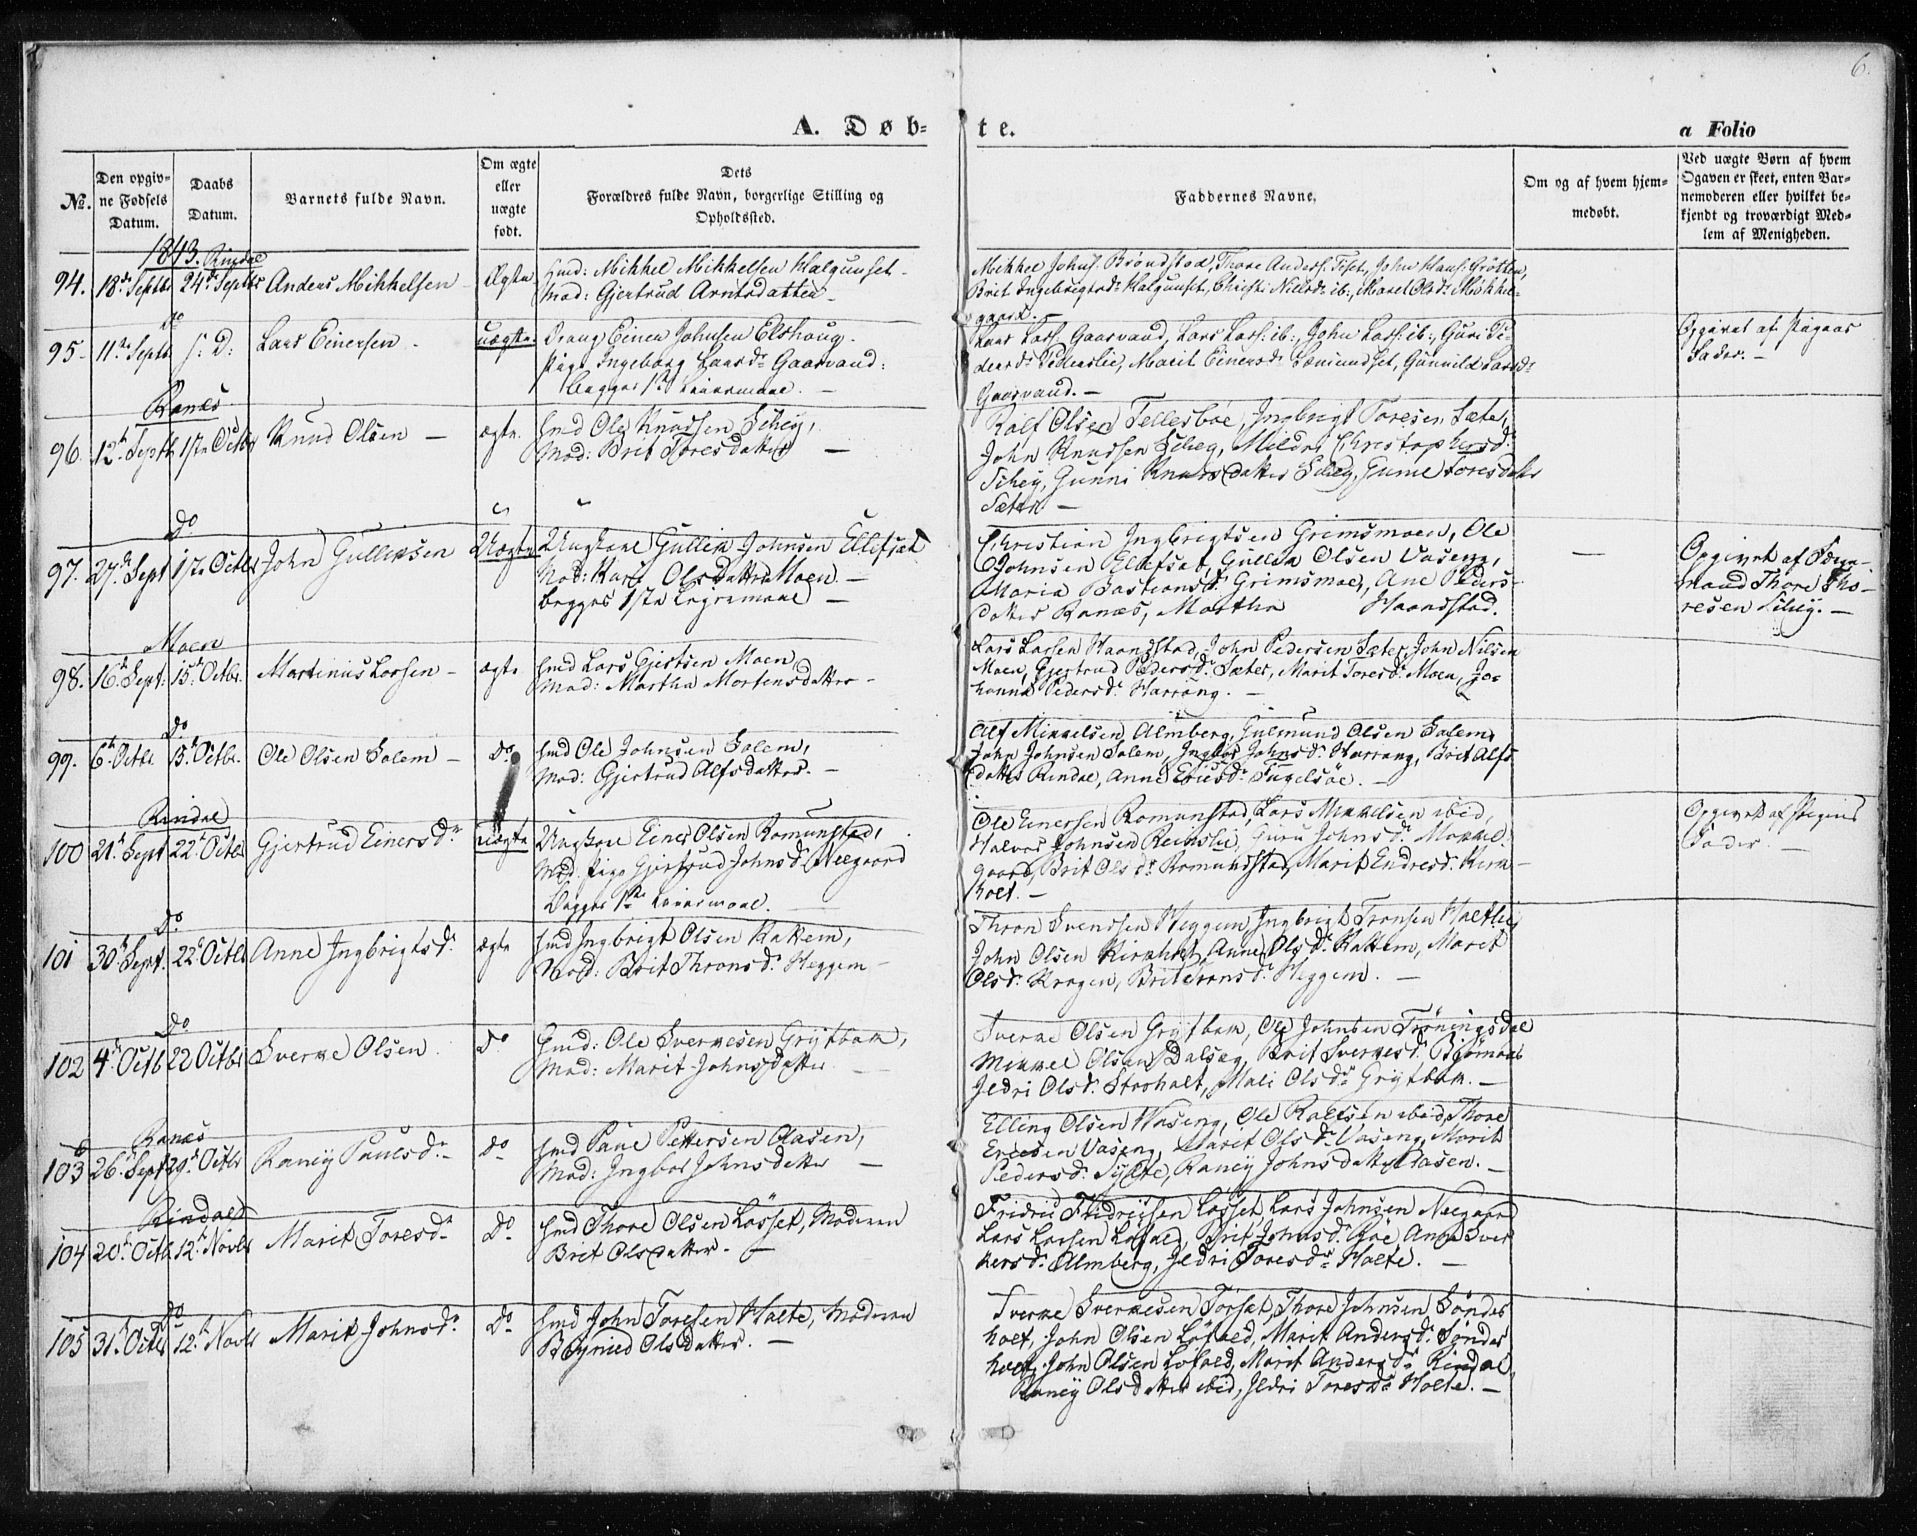 6.
A. Døb-
te.
a Folio
No.
Den opgiv-
ne Fødsels
Datum.
Daabs
Datum.
Barnets fulde Navn.
Om ægte
eller
uægte
født.
Dets
Forældres fulde Navn, borgerlige Stilling og
Opholdssted.
Faddernes Navne.
Om og af hvem hjem-
medøbt.
Ved uægte Børn af hvem
Opgaven er skeet, enten Bar-
nemoderen eller hvilket be-
kjendt og troværdigt Med-
lem af Menigheden.
1843. Rindal
94. 18de Septbr 24de Septbr Anders Mikkelsen – Ægte Hmd: Mikkel Mikkelsen Halgunset –
Mod: Gjertrud Arntsdatter –
Mikkel Johns. Brøndstad, Thore Anders. Tiset, John Hans. Grøtten,
Brit Ingebrigtsdr Halgunset, Christi Nielsdr ib:, Maret Olsdr Mikkel-
gaard. –
Do
95. 11te Septb. s: D: Lars Einersen – uægte. Drang Einer Johnsen Elshaug.
Pige Ingeborg Larsdr Gaasvand:
begges 1ste Leiermaal. –
Lars Lars. Gaasvand, Lars Lars. ib:, John Lars. ib:, Guri Pe-
dersdr Pederslie, Marit Einersdr Sæmundset, Gunnild Larsdr
Gaasvand. –
Opgivet af Pigens
Fader. –
Ranes
96. 12te Septb 1ste Octbr Knud Olsen – ægte. Hmd Ole Knudsen Schey,
Mod: Brit Toresdatter –
Rolf Olsen Tellesbøe, Ingbrigt Toresen Sæte,
John Knudsen Schey, Mildri Christophersdr
Schey, Gunni Knudsdatter Schey, Gurue Toresdatter
Sæter. –
Do
97. 27de Sept 1ste Octbr John Gulliksen Uægte Ungkarl Gullik Johnsen Ellefsæt
Mod: Kari Olsdatter Moen. –
begges 1ste Leyermaal –
Christian Ingbrigtsen Grimsmoen, Ole
Johnsen Ellefsæt, Gullik Olsen Vaseng,
Maria Bastiansdr Grimsmoe, Ane Peders-
datter Ranæs, Martha Haandstad.
—
Opgivet af Søgne-
mand Thore Tho-
resen Schey. –
Moen
98. 16de Sept: 15de Octbr. Martinius Larsen – ægte Hmd Lars Gjertsen Moen,
Mod: Martha Mortensdatter –
Lars Larsen Haandstad, John Pedersen Sæter, John Nilsen
Moen, Gjertrud Pedersdr Sæter, Marit Toresdr Moen, Jo-
hanna Pedersdr Harrang. –
Do
99. 6te Octbr 15. Octbr. Ole Olsen Solem – Do Hmd Ole Johnsen Solem,
Mod: Gjertrud Alfsdatter. –
Alf Mikkelsen Almberg, Gulmund Olsen Solem,
John Johnsen Solem, Ingbor Johnsdr Harrang, Brit Alfs
datter Rindal, Anne Ericsdr Fugelsøe. –
Rindal
100 21de Sept 22de Octbr Gjertrud Einersdr uægte Ungkarl Einer Olsen Romunstad,
Mod. Pige Gjertrud Johnsdr Neegaard
Begges 1ste Leiermaal.
Ole Einersen Romunstad, Lars Mikkelsen ibid,
Halvor Johnsen Reinslie, Guru Johnsdr Mikkel-
gaard, Brit Olsdr Romundstad, Marit Endresdr Kirk-
holt. –
Opgivet af Pigens
Fader. –
Do
101 30te Sept. 22de Octbr Anne Ingbrigtsdr ægte Hmd Ingbrigt Olsen Kattem,
Mod: Brit Thronsdr Heggem –
Thron Svendsen Heggem, Ingbrigt Tronsen Holtlie,
John Olsen Kirkholt, Anne Olsdr Kattem, Marit
Olsdr Krogen, Brit Tronsdr Heggem. –
Do
102 4de Octb 22 Octbr Sverke Olsen Do Hmd: Ole Sverkesen Grytbak,
Mod: Marit Johnsdatter –
Sverke Olsen Grytbak, Ole Johnsen Trøningsdal
Mikkel Olsen Dalsæg, Brit Sverkesdr Bjørnaas
Jldri Olsdr Storholt, Mali Olsdr Grytbak. –
Ranes
103 26de Sept 29de Octbr Raney Paulsdr Do Hmd Paul Pettersen Aasen,
Mod: Ingbor Johnsdatter –
Elling Olsen Vaseng, Ole Rolfsen ibid, Thore
Ericsen Vaseng, Maret Olsdr Vaseng, Marit
Pedersdr Sylte, Raney Johnsdatter Aasen. –
Rindal
104 20de Octb. 12te Novbr Marit Toresdr Do Hmd Thore Olsen Løsset, Moderen
Brit Olsdatter. –
Fridric Fridricsen Løsset, Lars Johnsen Neegaard
Lars Larsen Løfald, Brit Johnsdr Røe, Ane Sver
kersdr Almberg, Jldri Toresdr Holte. –
Do
105 31te Octbr 12te Novbr Marit Johnsdr Do Hmd John Toresen Holte, Moderen
Bogned Olsdatter. –
Sverke Sverkesen Torsæt, Thore Johnsen Sønder
holt, John Olsen Løfald, Marit Andersdr Sønder
holt, John Olsen Løfald, Marit Andersdr Rindal,
Raney Olsdatter ibid, Jldri Toresdr Holte. –